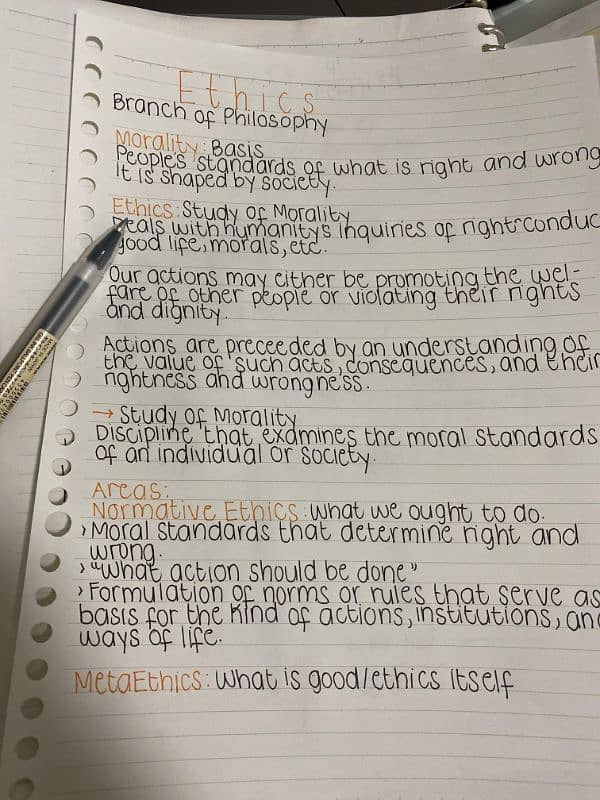 Ethics
Branch of Philosophy
Morality: Basis
People's standards of what is right and wrong
It is shaped by society.
Ethics: Study of Morality
Deals with humanity's inquiries of right conduc
good life, morals, etc.
Our actions may either be promoting the wel-
fare of other people or violating their rights
and dignity.
Actions are preceeded by an understanding of
the value of such acts, consequences, and their
rightness and wrongness.
→ Study of Morality
Discipline that examines the moral standards
of an individual or society.
Areas:
Normative Ethics: what we ought to do.
> Moral standards that determine right and
wrong.
> "What action should be done"
> Formulation of norms or rules that serve as
basis for the kind of actions, institutions, and
ways of life.
MetaEthics: What is good/ethics itself